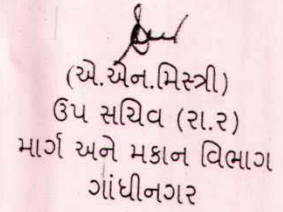 (એ.એન.મિસ્ત્રી)
ઉપ સચિવ (રા.ર)
માર્ગ અને મકાન વિભાગ
ગાંધીનગર